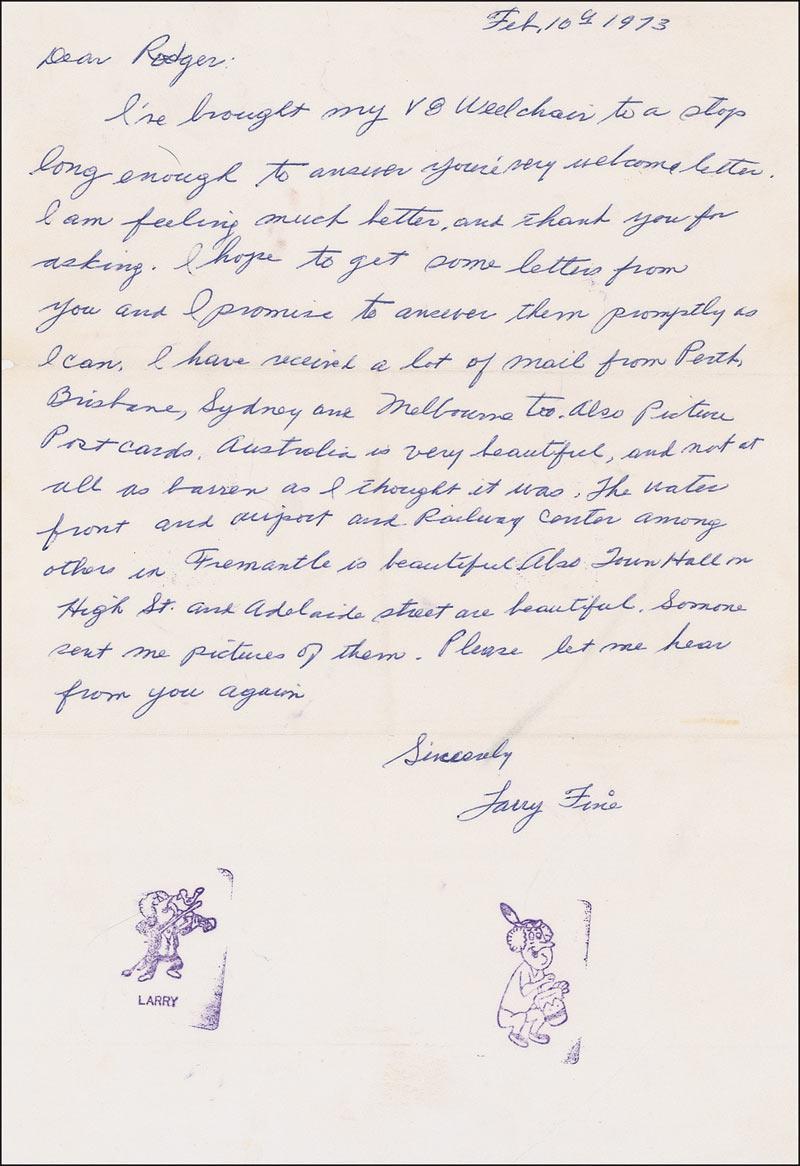 Feb, 10th 1973
Dear Rodger:
I've brought my V8 Weelchair to a stop
long enough to answer you're very welcome letter.
I am feeling much better, and thank you for
asking. I hope to get some letters from
you and I promise to answer them promptly as
I can. I have received a lot of mail from Perth,
Brisbane, Sydney and Melbourne too. Also Picture
Post cards. Australia is very beautiful, and not at
all as barren as I thought it was. The water
front and airport and Railway Center among
others in Fremantle is beautiful. Also Town Hall on
High St. and Adelaide street are beautiful. Somone
sent me pictures of them. Please let me hear
from you again
Sincerely
Larry Fine
LARRY